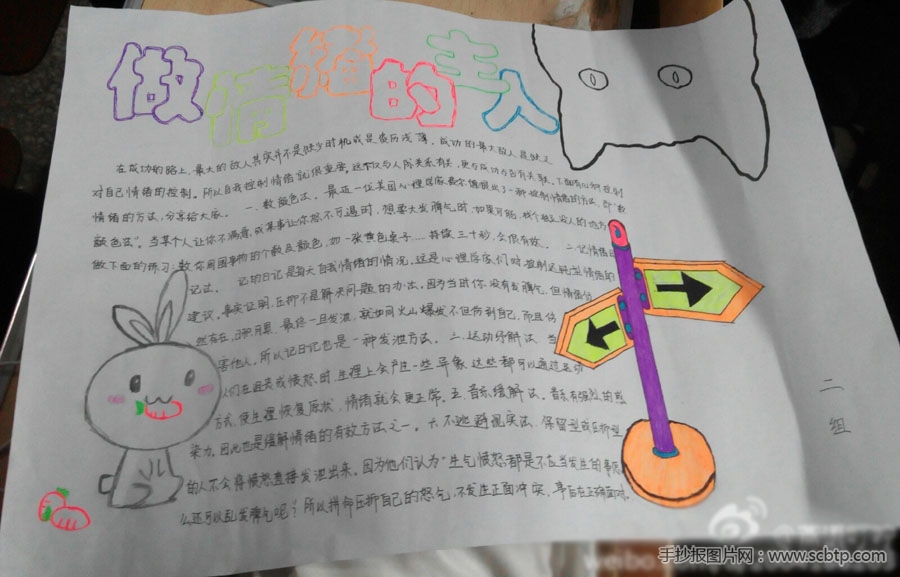 做情绪的主人
在成功的路上，最大的敌人其实并不是缺少时机或是资历浅薄，成功的最大敌人是缺乏
对自己情绪的控制。所以自我控制情绪就很重要。这不仅与人际关系有关，更与成功与否有关联。下面有心种控制
情绪的方法，分享给大家。一、数颜色法。最近一位美国心理学家费尔德提出了一种控制情绪的方法，即"数
颜色法"。当某个人让你不满意，或某事让你怒不可遏时，想要大发脾气时，如果可能，找个独立没人的地方
做下面的练习：数你周围事物的个数及颜色，如一张黄色桌子……持续三十秒，会很有效。二、记情绪日
记法。记的日记是每天自我情绪的情况，这是心理学家们对控制这种情绪的
建议。事实证明，压抑不是解决问题的办法，因为当时你没有发脾气，但情绪仍
然存在，日积月累，最终一旦发泄，就如同火山爆发，不但伤到自己，而且伤
害他人，所以记日记也是一种发泄方法。二、运动纾解法。当
人们在沮丧或愤怒时，生理上会产生一些异象，这些都可以通过运动
方式，使生理恢复原状，情绪就会更正常。五、音乐缓解法。音乐有强烈的感
染力，因此也是缓解情绪的有效方法之一。六、不逃避现实法。保留型或压抑型
的人不会将愤怒直接发泄出来。因为他们认为"生气愤怒都是不应当发生的事，怎
么还可以乱发脾气呢？所以拼命压抑自己的怒气，不发生正面冲突，事后在正确面对。
二组
手抄报图片网：www.scbtp.com